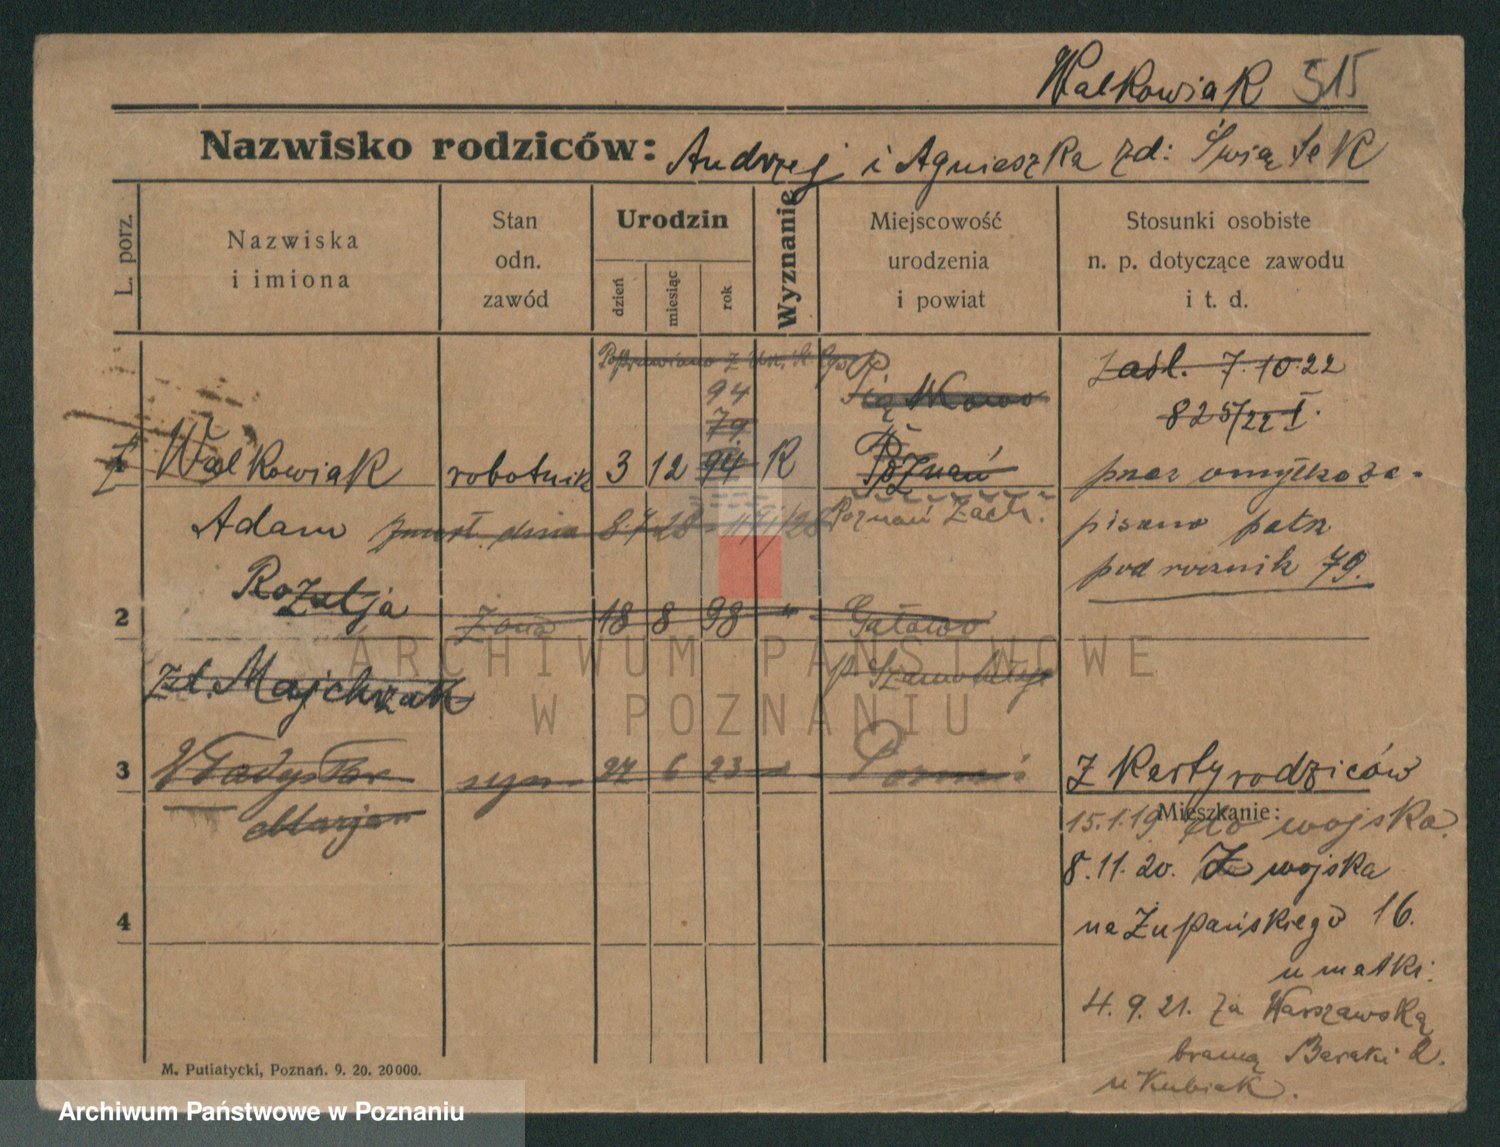 Walkowiak 515
Nazwisko rodziców: Andrzej i Agnieszka zd: Świątek
L. porz.
Nazwiska
i imiona
Stan
odn.
zawód
Urodzin
dzień
miesiąc
rok
Wyznanie
Miejscowość
urodzenia
i powiat
Stosunki osobiste
n. p. dotyczące zawodu
i t. d.
Poprawiono z
94
79
zaśl. 7.10.22
825/22 I.
1 Walkowiak robotnik 3 12 94 R Poznań
Adam zmarł dnia 8.7.28
Poznań Zach.
przez omyłkę za-
pisano patrz
pod rocznik 79.
Rozalja
2 żona 18 8 98 " Gałowo
p. Szamotuły
zd. Majchrzak
3 Władysław syn 27 6 23 Poznań
Marjan
z karty rodziców
Mieszkanie:
15.1.19 do wojska.
8.11.20. Z wojska
na Żupańskiego 16.
u matki.
4.9.21. za Warszawską
bramą Baraki 2.
u Kubiak.
4
M. Putiatycki, Poznań. 9. 20. 20000.
ARCHIWUM PAŃSTWOWE
W POZNANIU
Archiwum Państwowe w Poznaniu